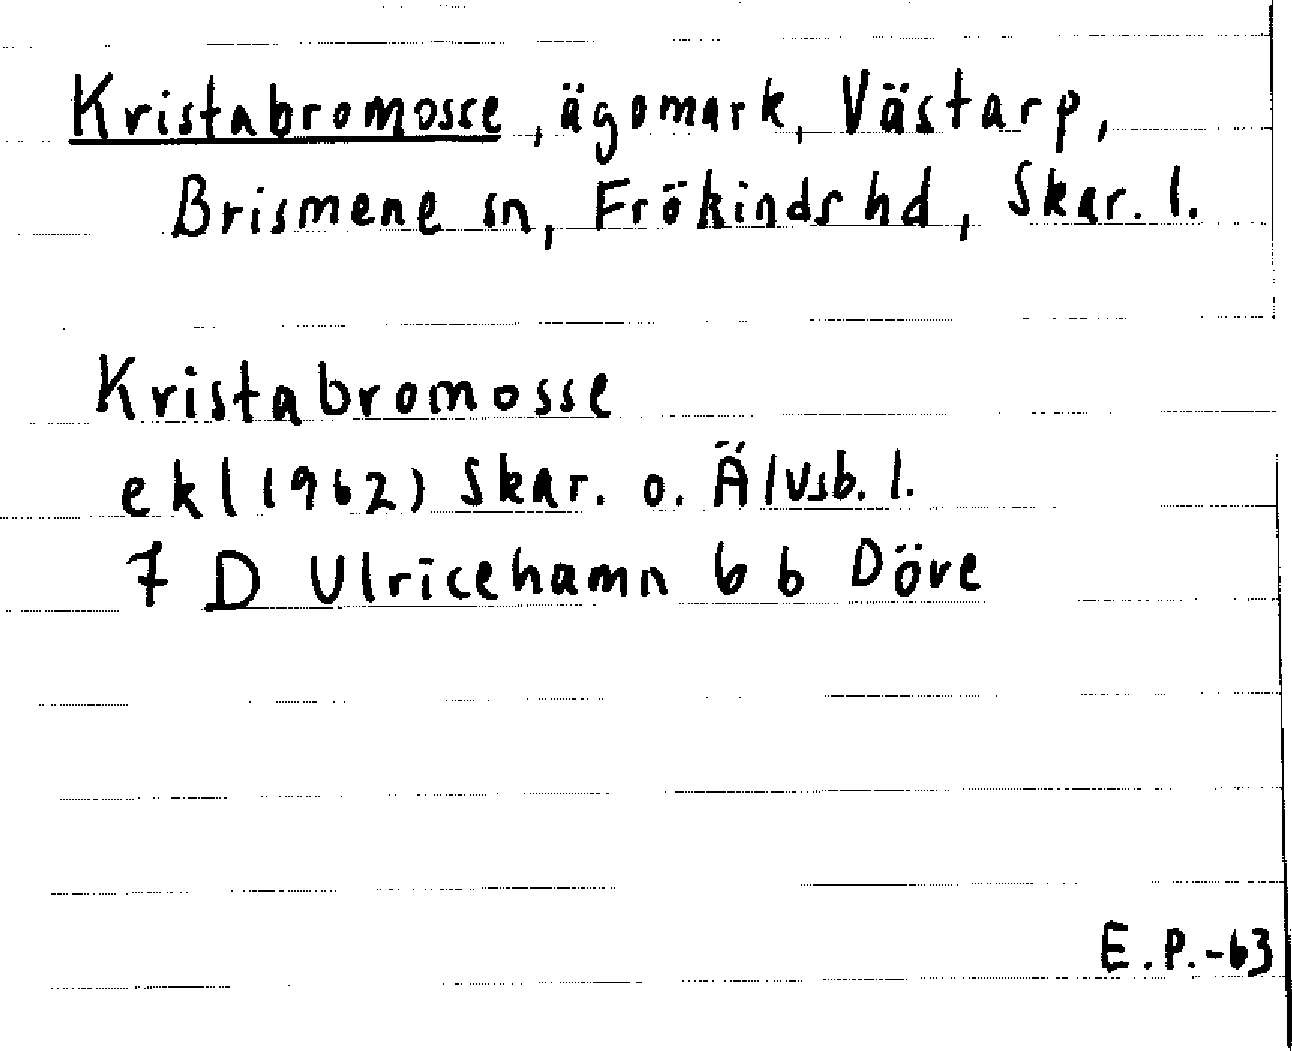 Kristabromosse, ägomark, Västarp,
Brismene sn, Frökinds hd, Skar. l.
Kristabromosse
ekl (1962) Skar. o. Älvsb. l.
7 D Ulricehamn 6 b Döve
E.P.-63